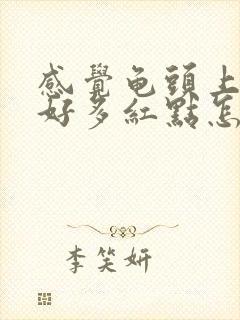 感覺龟頭上
好多紅點怎
李笑妍